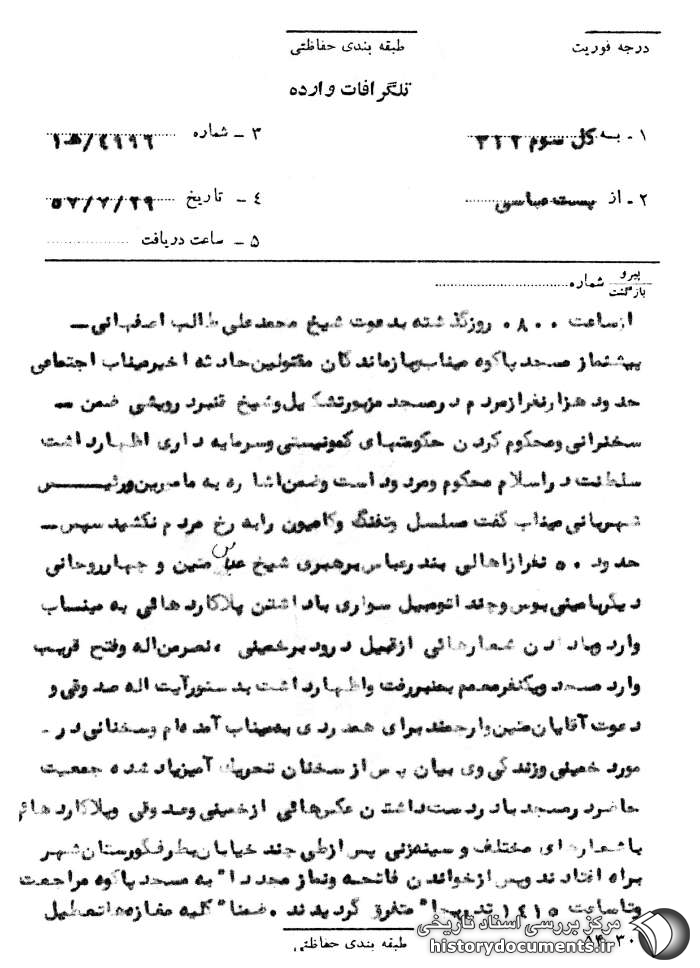 درجه فوریت
طبقه بندی حفاظتی
تلگرافات وارده
۱ - به کل سوم ۳۲۲
۳ - شماره ۴۹۹۶/ه‍ ۱
۲ - از پست عباسی
۴ - تاریخ ۵۷/۷/۲۹
۵ - ساعت دریافت
پیرو
بازگشت شماره
ازساعت ۰۸۰۰ روزگذشته بدعوت شیخ محمدعلی طالب اصفهانی -
پیشنماز مسجد پاکوه میناب وبازماندگان مقتولین حادثه اخیرمیناب اجتماعی
حدود هزارنفرازمردم درمسجد مزبورتشکیل وشیخ قنبرد رویشی ضمن --
سخنرانی ومحکوم کردن حکومتهای کمونیستی وسرمایه داری اظهارداشت
سلطنت دراسلام محکوم ومردوداست وضمن اشاره به مامورین ورئیس
شهربانی میناب گفت مسلسل وتفنگ وکامیون رابه رخ مردم نکشید سپس -
حدود ۵۰ نفرازاهالی بندرعباس برهبری شیخ عباس متین و چهارروحانی
دیگربامینی بوس وچند اتومبیل سواری باداشتن پلاکاردهائی به میناب
وارد وبادادن شعارهائی ازقبیل درودبرخمینی ، نصرمن اله وفتح قریب
وارد مسجد ویکنفرمعمم بمنبررفت واظهارداشت بدستورآیت اله صدوقی و
دعوت آقایان متین وارجمند برای همدردی به میناب آمده ام وسخنانی در -
مورد خمینی وزندگی وی بیان پس از سخنان تحریک آمیزیاد شده جمعیت
حاضردرمسجد بادردست داشتن عکس هائی ازخمینی وصدوقی وپلاکاردهائی
باشعارهای مختلف و سینه زنی پس ازطی چند خیابان بطرف گورستان شهر
براه افتادند وپس ازخواندن فاتحه ونماز مجددا" به مسجد پاکوه مراجعت
وتاساعت ۱۴۱۵ تدریجا" متفرق گردیدند . ضمنا" کلیه مغازه ها تعطیل
طبقه بندی حفاظتی
۳۰ - ۸۴
مرکز بررسی اسناد تاریخی
historydocuments.ir